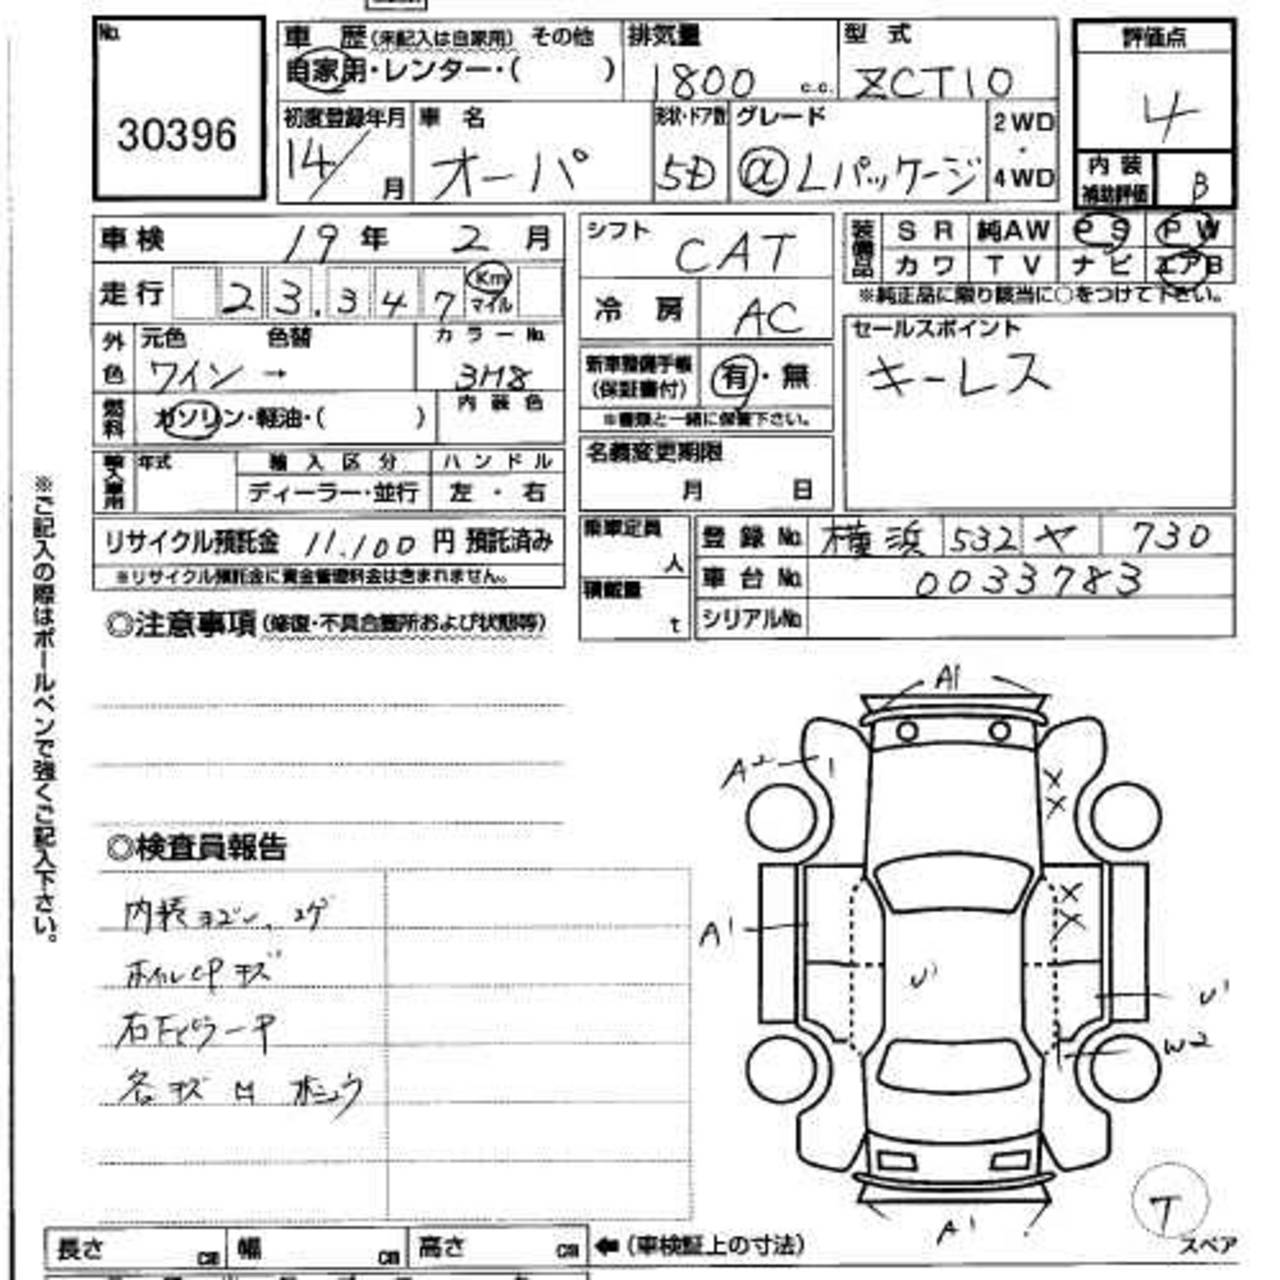 No.
30396
車歴(未記入は自家用) その他
自家用・レンター・( )
排気量
1800 c.c.
型式
ZCT10
評価点
4
初度登録年月
14/ 月
車名
オーパ
形状・ドア数
5D
グレード
α Lパッケージ
2WD
・
4WD
内装
補助評価
B
車検 19年 2月
走行 23.347 Km
マイル
シフト
CAT
冷房 AC
装備品
SR 純AW PS PW
カワ TV ナビ エアB
※純正品に限り該当に○をつけて下さい。
外色
元色 色替
ワイン →
カラーNo.
3H8
燃料
ガソリン・軽油・( )
内装色
新車整備手帳
(保証書付)
有・無
※書類と一緒に保管下さい。
セールスポイント
キーレス
輸入車用
年式
輸入区分
ディーラー・並行
ハンドル
左・右
名義変更期限
月 日
リサイクル預託金 11.100円 預託済み
※リサイクル預託金に資金管理料金は含まれません。
乗車定員
人
積載量
t
登録No. 横浜 532 ヤ 730
車台No. 0033783
シリアルNo.
◎注意事項(修復・不具合箇所および状態等)
※ご記入の際はボールペンで強くご記入下さい。
◎検査員報告
内装ヨゴレ、コゲ
キズ
各キズ
A1
A2
A1
U1
W2
A1
T
スペア
長さ cm 幅 cm 高さ cm ←(車検証上の寸法)